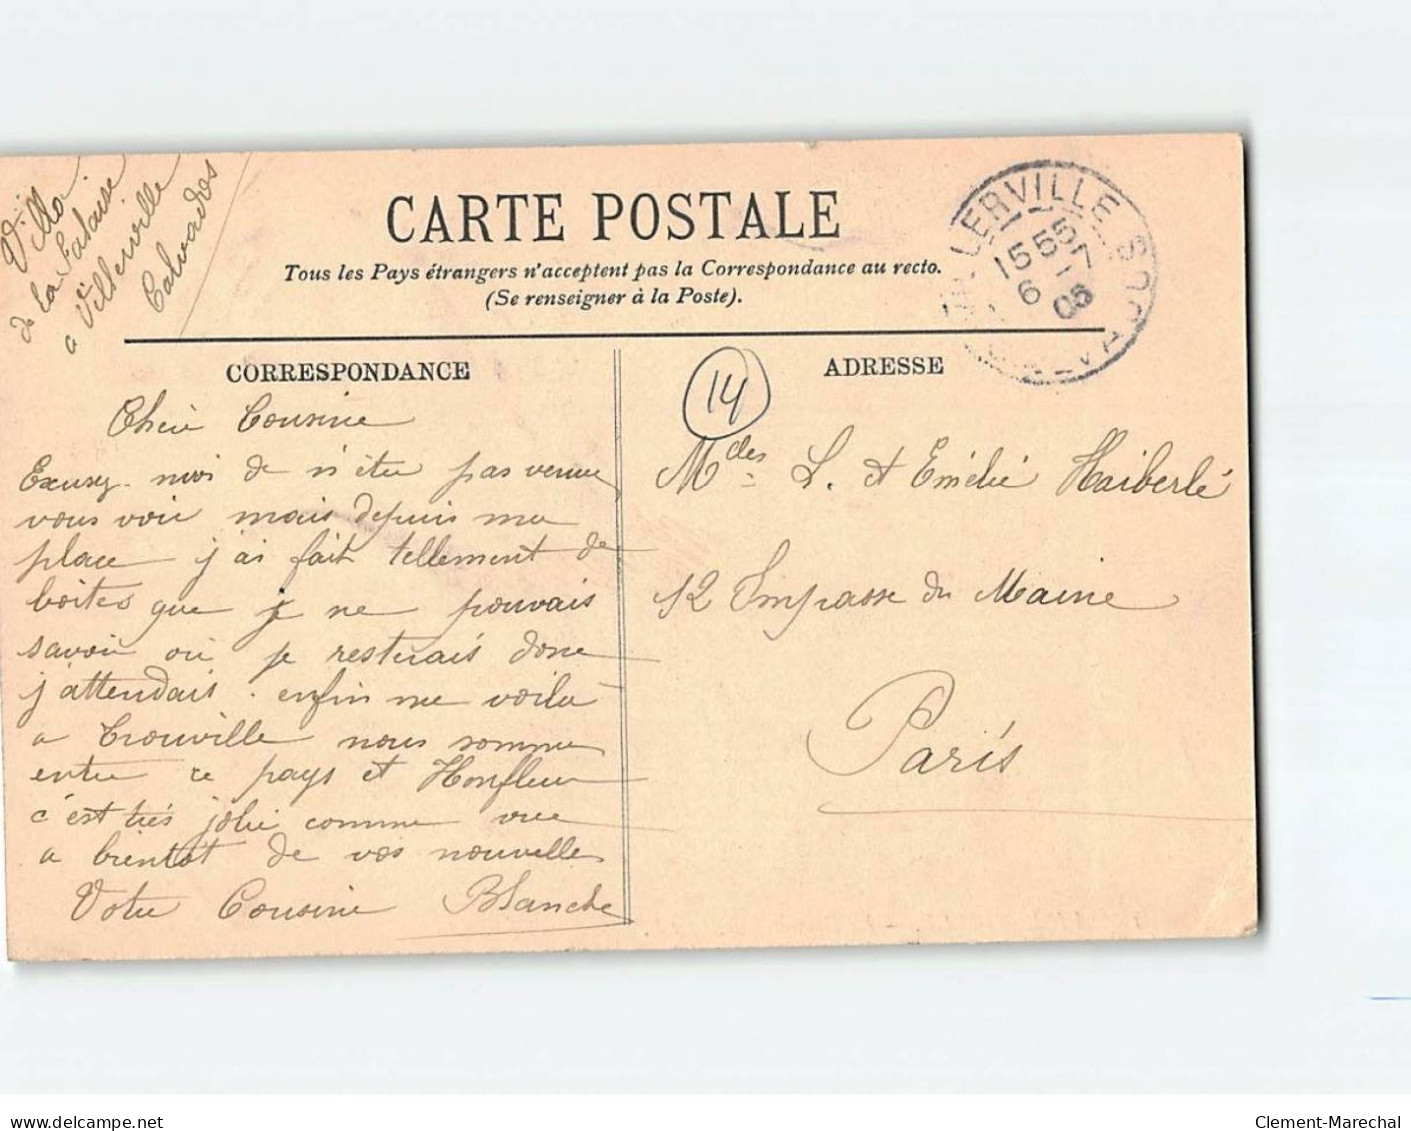 Villa
de la Falaise
a Villerville
Calvados
CARTE POSTALE
Tous les Pays étrangers n'acceptent pas la Correspondance au recto.
(Se renseigner à la Poste).
CORRESPONDANCE
Chère Cousine
Excusez-moi de n'être pas venue
vous voir mais depuis ma
place j'ai fait tellement de
boites que je ne pouvais
savoir où je resterais donc
j'attendais. enfin me voilà
a Trouville nous somme
entre ce pays et Honfleur
c'est très jolie comme vue
a bientot de vos nouvelles
Votre Cousine Blanche
LERVILLE
15 55
6
14
ADRESSE
Mdes L. et Emélie Haiberlé
12 Impasse du Maine
Paris
www.delcampe.net
Clement-Marechal